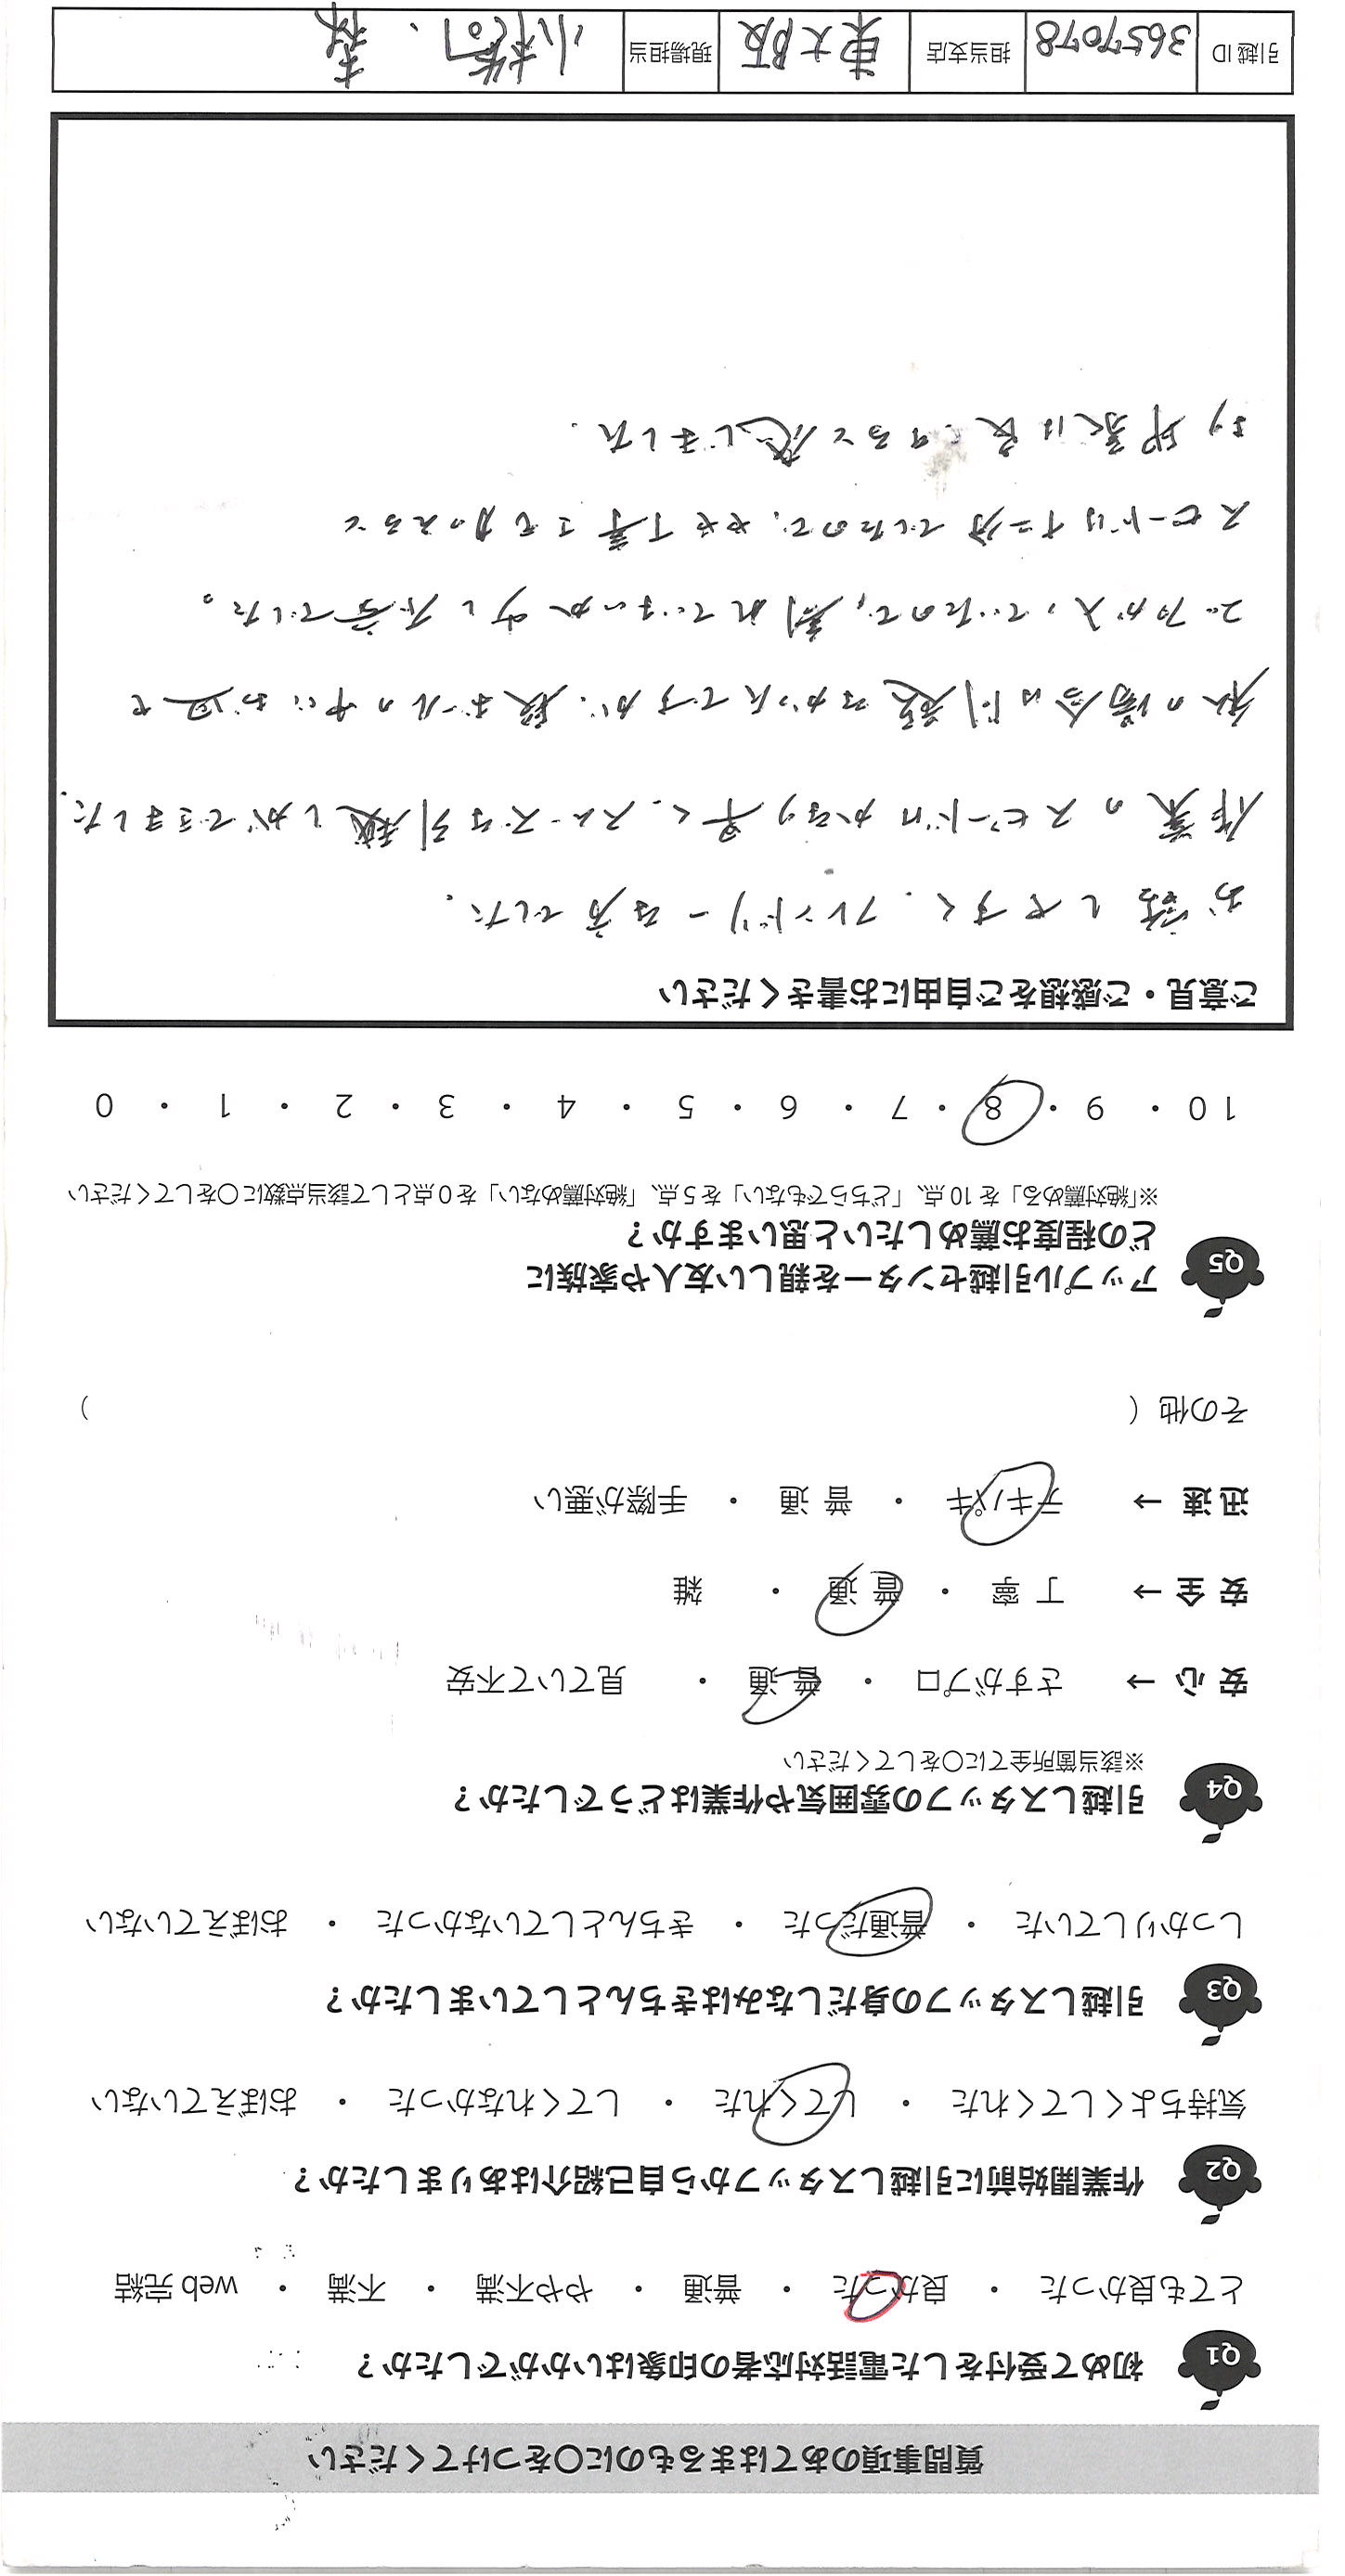 質問事項のあてはまるものに○をつけてください
Q1 初めて受付をした電話対応者の印象はいかがでしたか？
とても良かった ・ 良かった ・ 普通 ・ やや不満 ・ 不満 ・ web 完結
Q2 作業開始前に引越しスタッフから自己紹介はありましたか？
気持ちよくしてくれた ・ してくれた ・ してくれなかった ・ おぼえていない
Q3 引越しスタッフの身だしなみはきちんとしていましたか？
しっかりしていた ・ 普通だった ・ きちんとしていなかった ・ おぼえていない
Q4 引越しスタッフの雰囲気や作業はどうでしたか？
※該当箇所全てに○をしてください
安 心 → さすがプロ ・ 普 通 ・ 見ていて不安
安 全 → 丁 寧 ・ 普 通 ・ 雑
迅 速 → テキパキ ・ 普 通 ・ 手際が悪い
その他（ ）
Q5 アップル引越センターを親しい友人や家族に
どの程度お薦めしたいと思いますか？
※「絶対薦める」を 10 点、「どちらでもない」を 5 点、「絶対薦めない」を 0 点として該当点数に○をしてください
10 ・ 9 ・ 8 ・ 7 ・ 6 ・ 5 ・ 4 ・ 3 ・ 2 ・ 1 ・ 0
ご意見・ご感想をご自由にお書きください
お話しやすく、フレンドリーな方でした。
作業のスピードはかなり早く、スムーズな引越しができました。
私の場合は問題なかったですが、段ボールの中にお皿や
コップが入っていたので、割れていないか少し不安でした。
スピードは十二分でしたので、やや丁寧さも加わると
より印象は良くなると感じました。
引越 ID 3657078 担当支店 東大阪 現場担当 小橋口、森